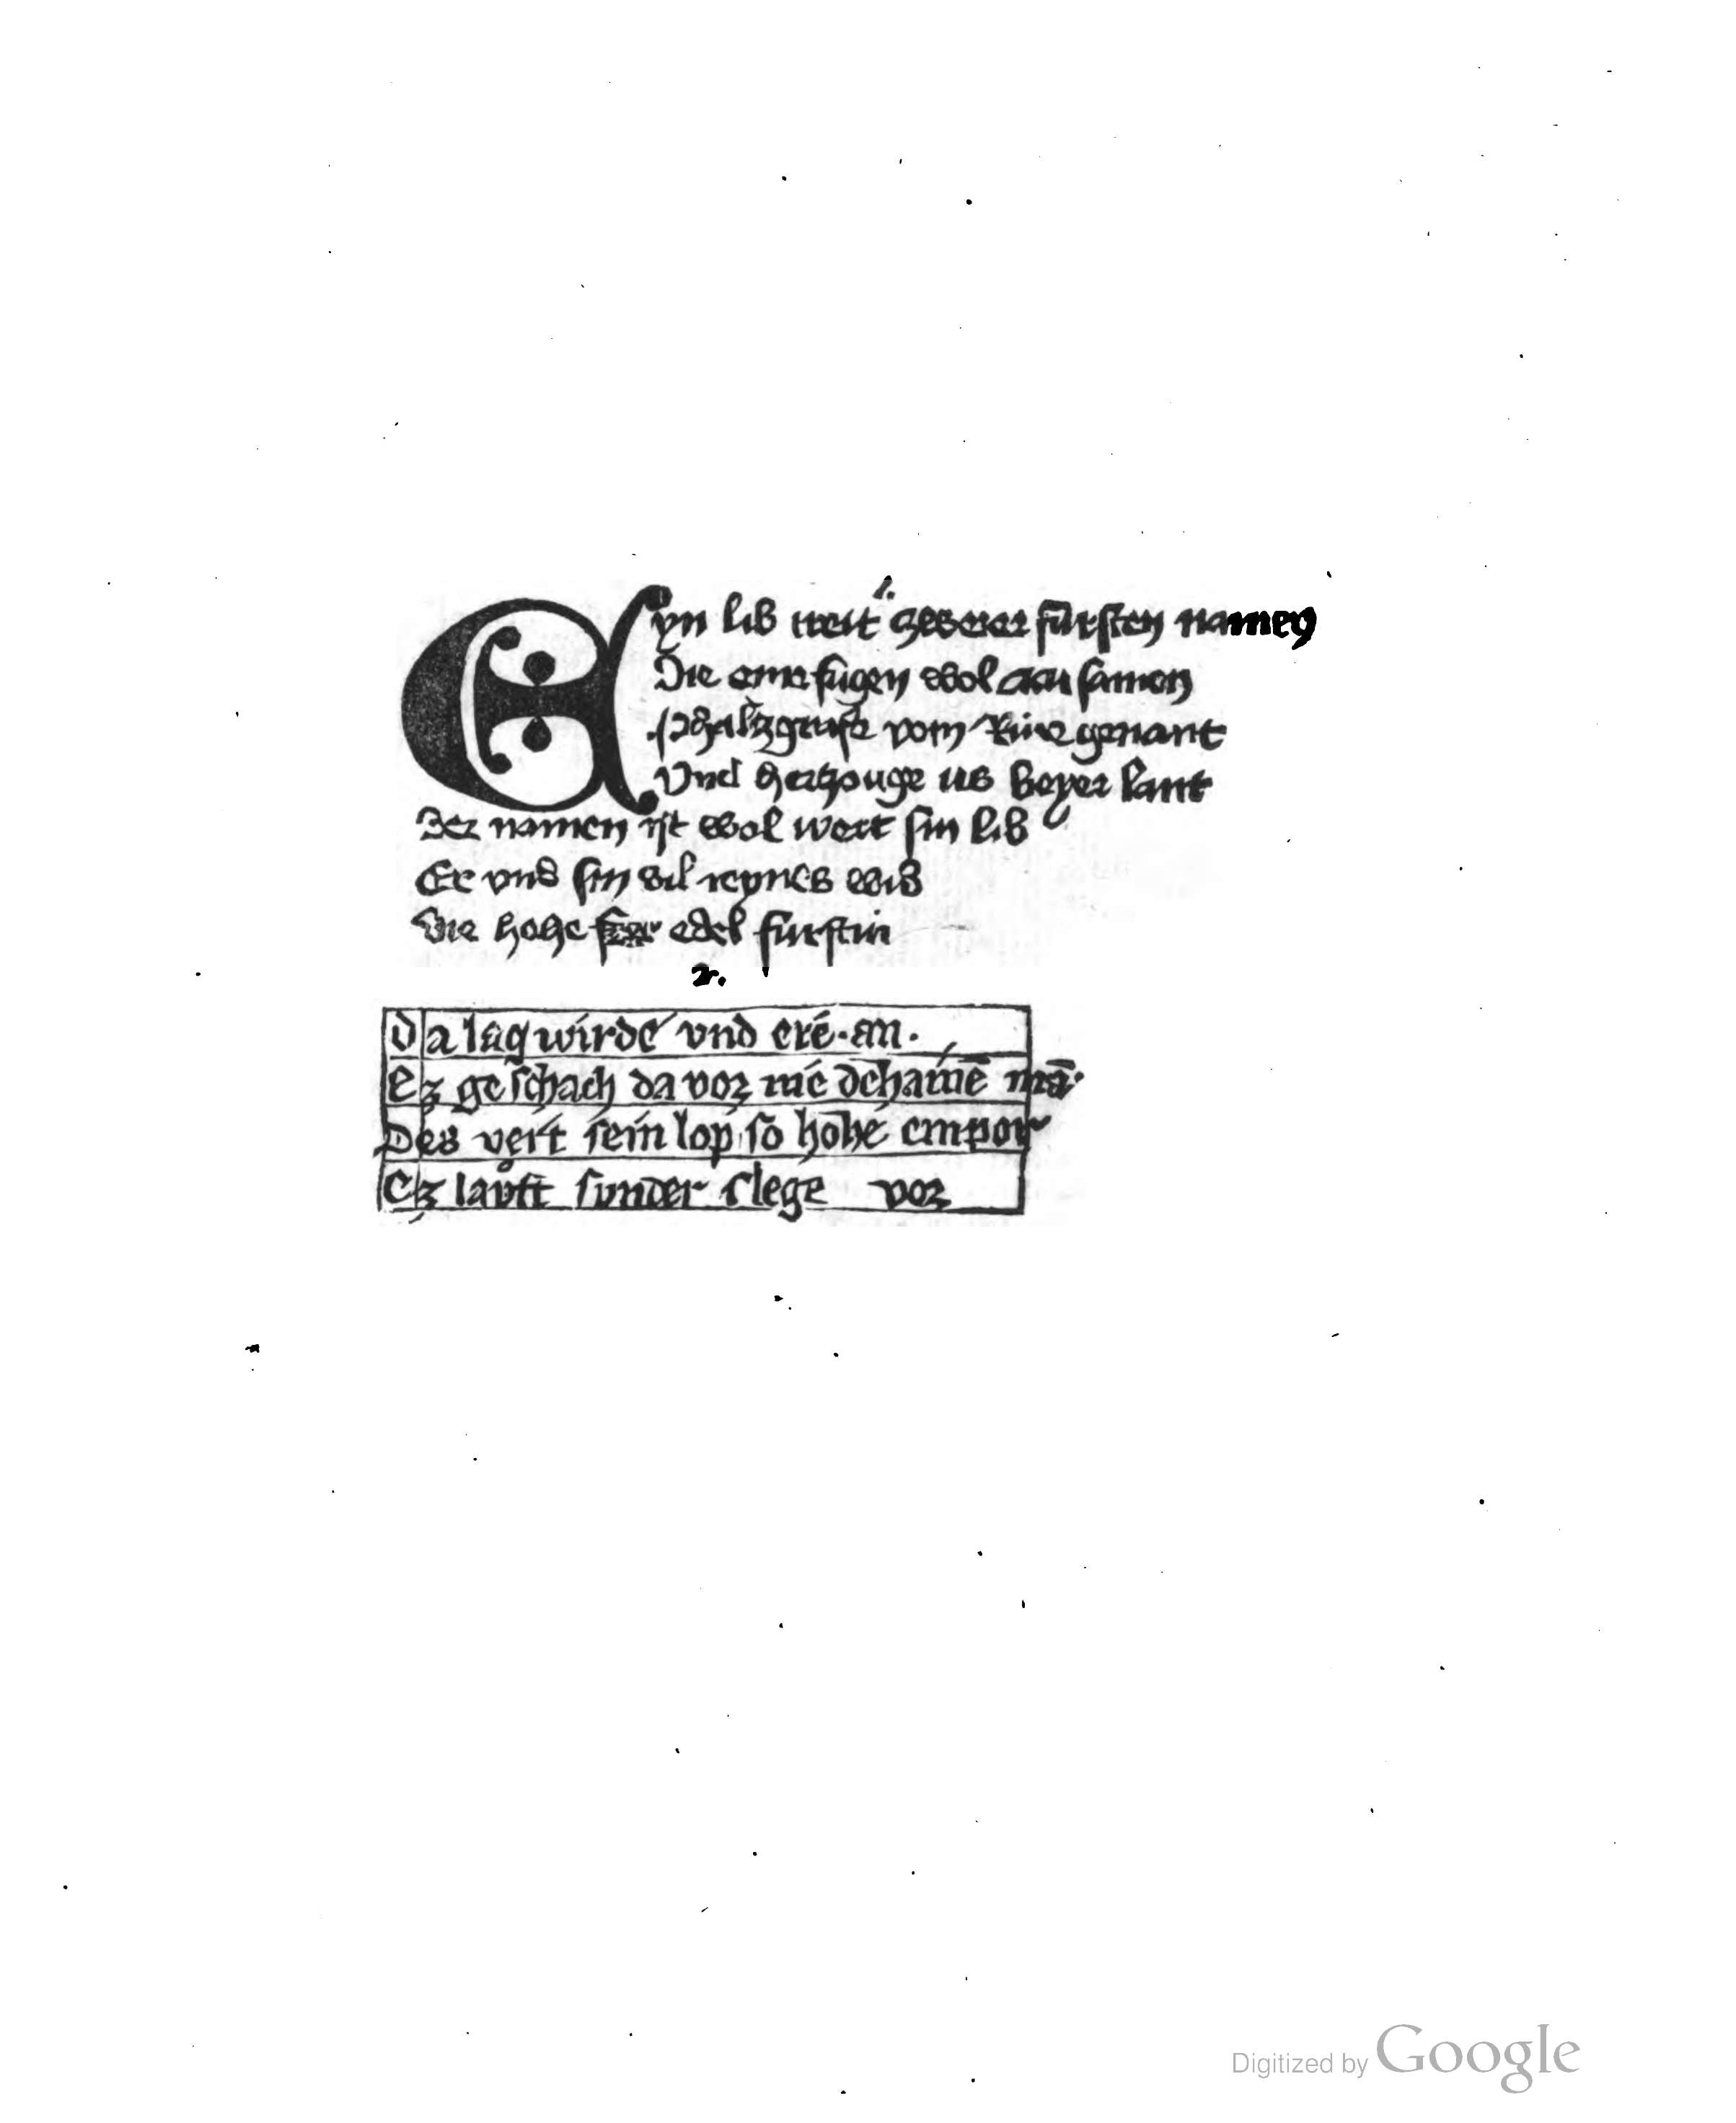 1.
Eyn lib treit zweier fursten namen
Die eme fugen wol zu samen
Phaltzgrafe vom Rine genant
Vnd hertzouge us beyer lant
Der namen ist wol wert sin lib
Er vnd sin vil reynes wib
Die hohe edel furstin
2.
Da lag wirde vnd ere. an.
Ez geschach da vor nie dehaine mā.
Des vert sein lop so hohe empor
Ez lauft sunder slege vor
Digitized by Google